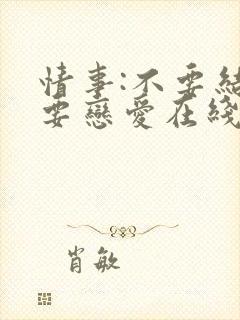 情事:不要結
要戀愛在綫
肖敏